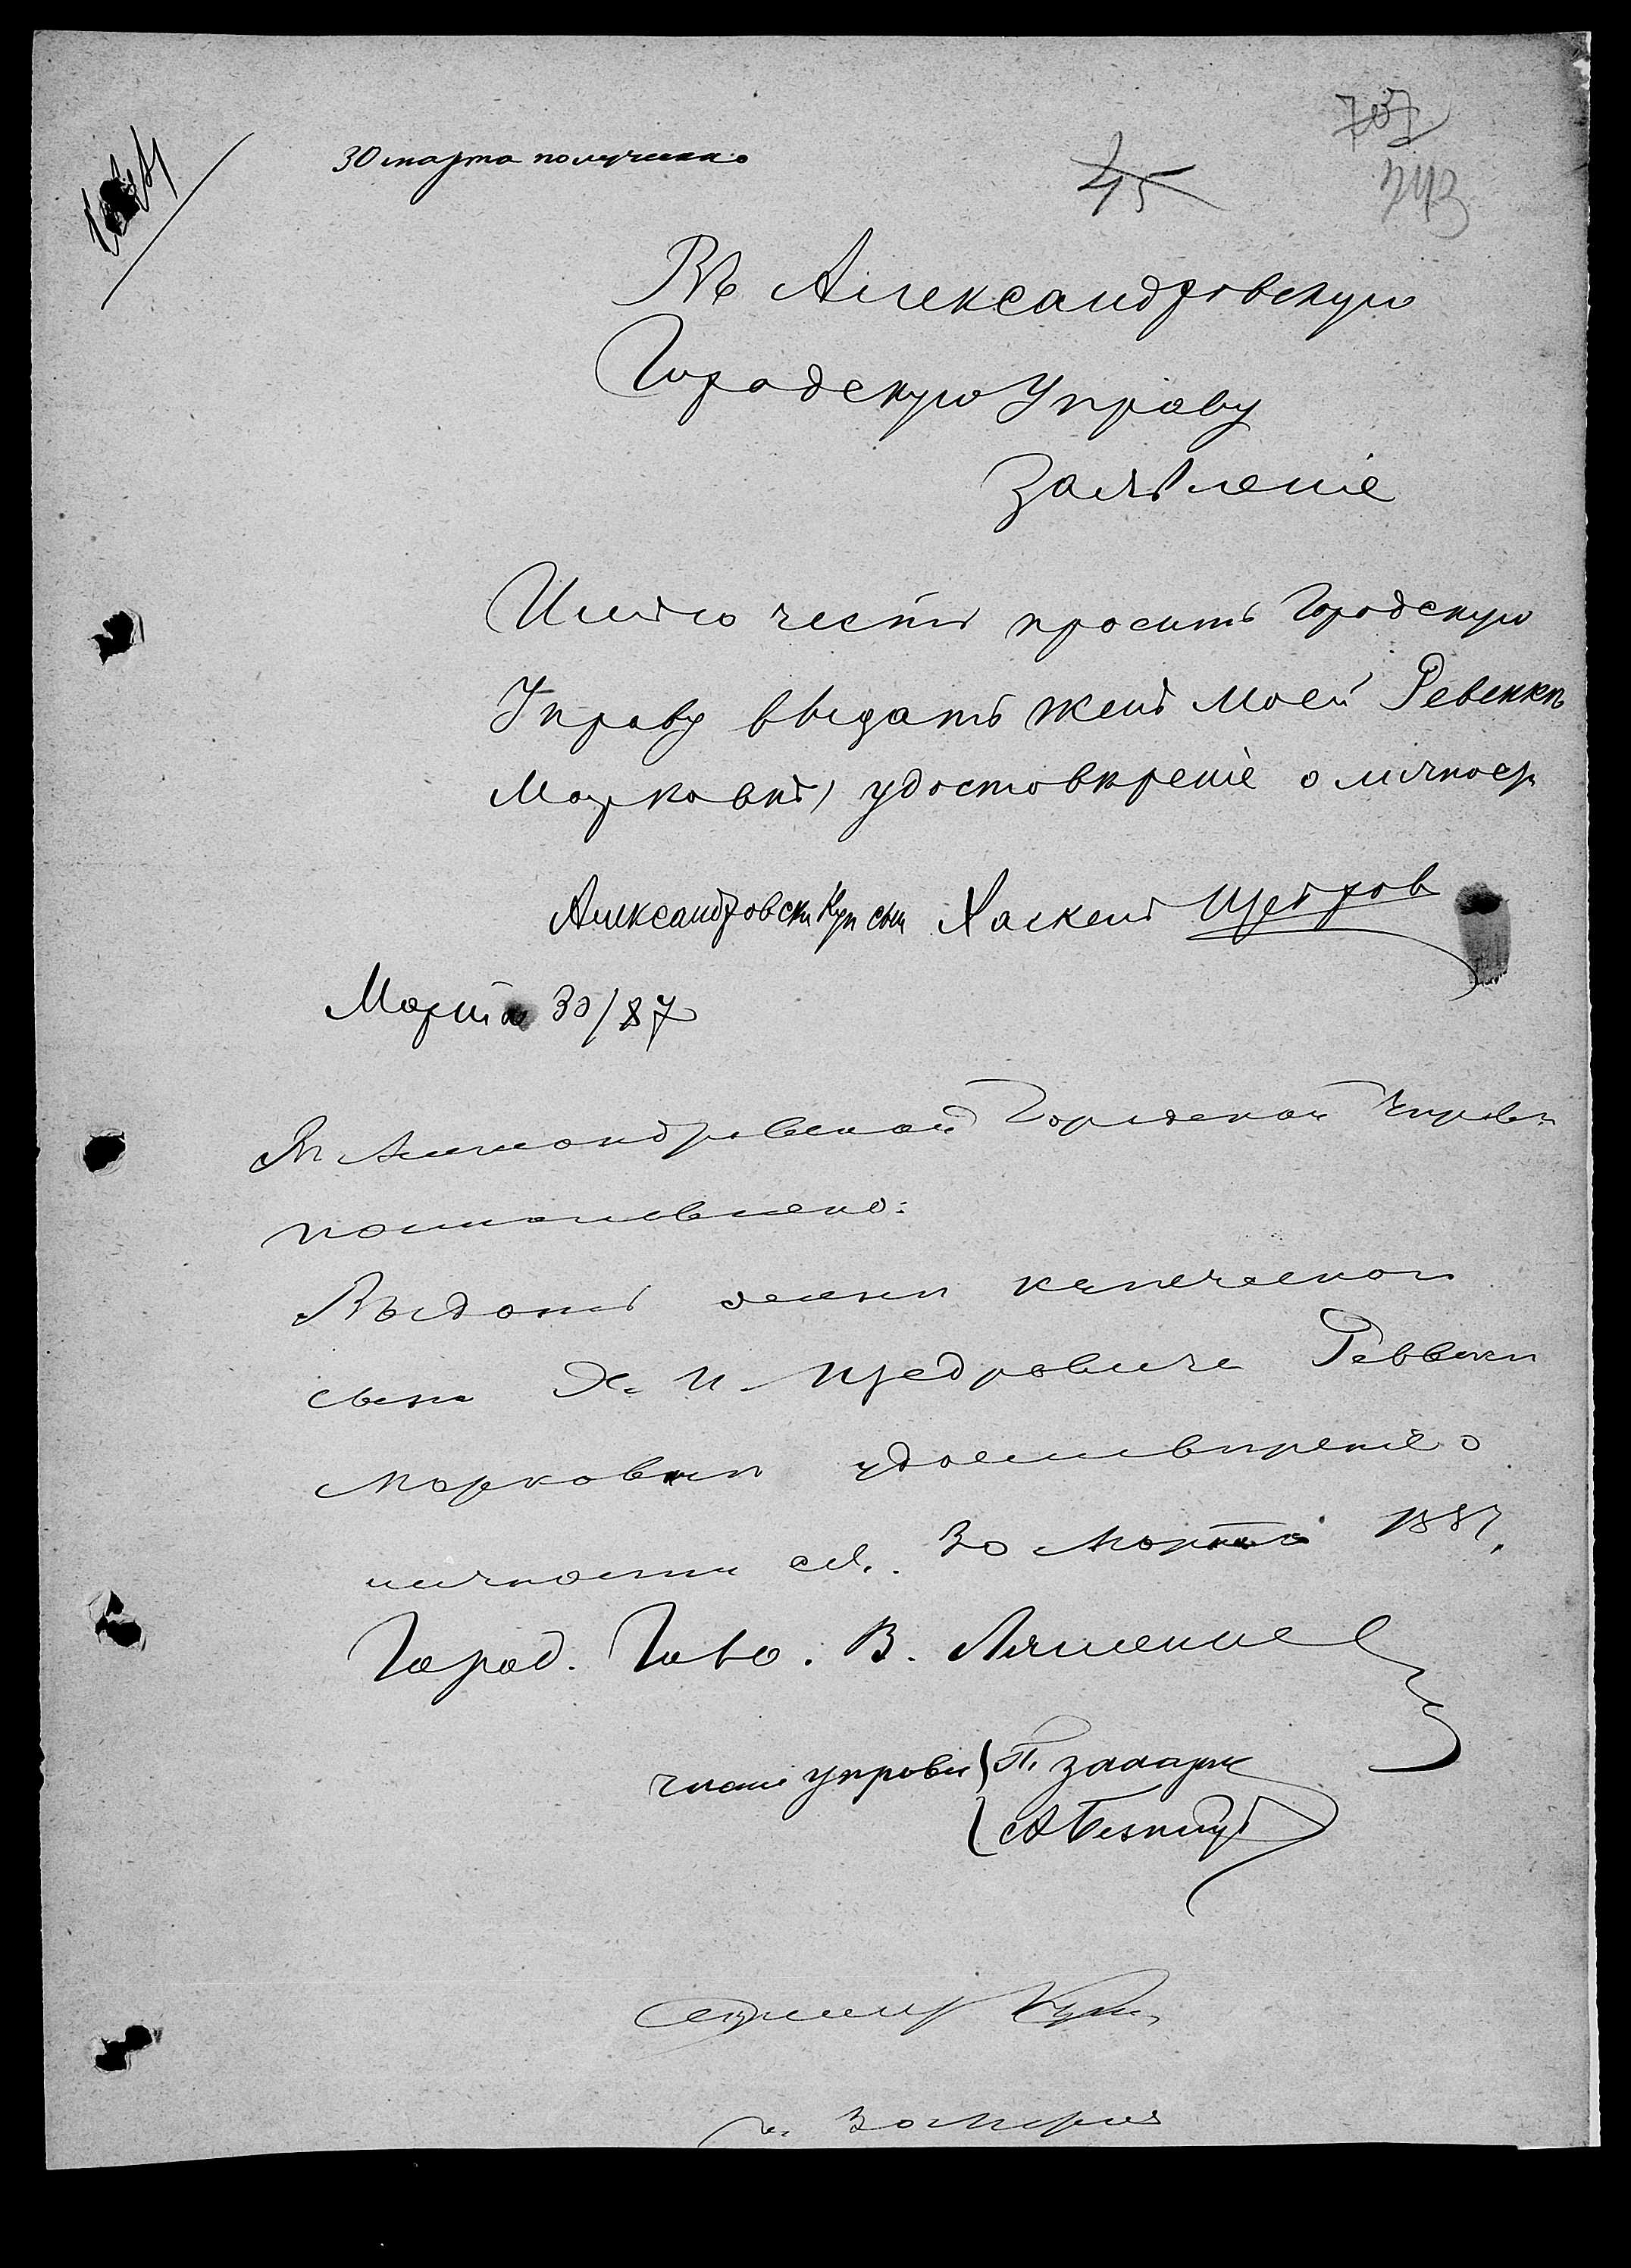 30 марта получено
45
737
243
Въ Александровскую
Городскую Управу
Заявленіе
Имѣю честь просить Городскую
Управу выдать женѣ моей Ревеккѣ
Марковнѣ, удостовѣреніе о личност
Александровскій Куп сын Хаскель Щедров
Марта 30/87
Въ Александровской Городской Управѣ
постановлено:
Выдать женѣ купеческого
сына Х. И. Щедровича Реввеки
Марковнѣ удостовѣреніе о
личности ея. 30 Марта 1887.
Город. Голо. В. Ляшенко
члены управы